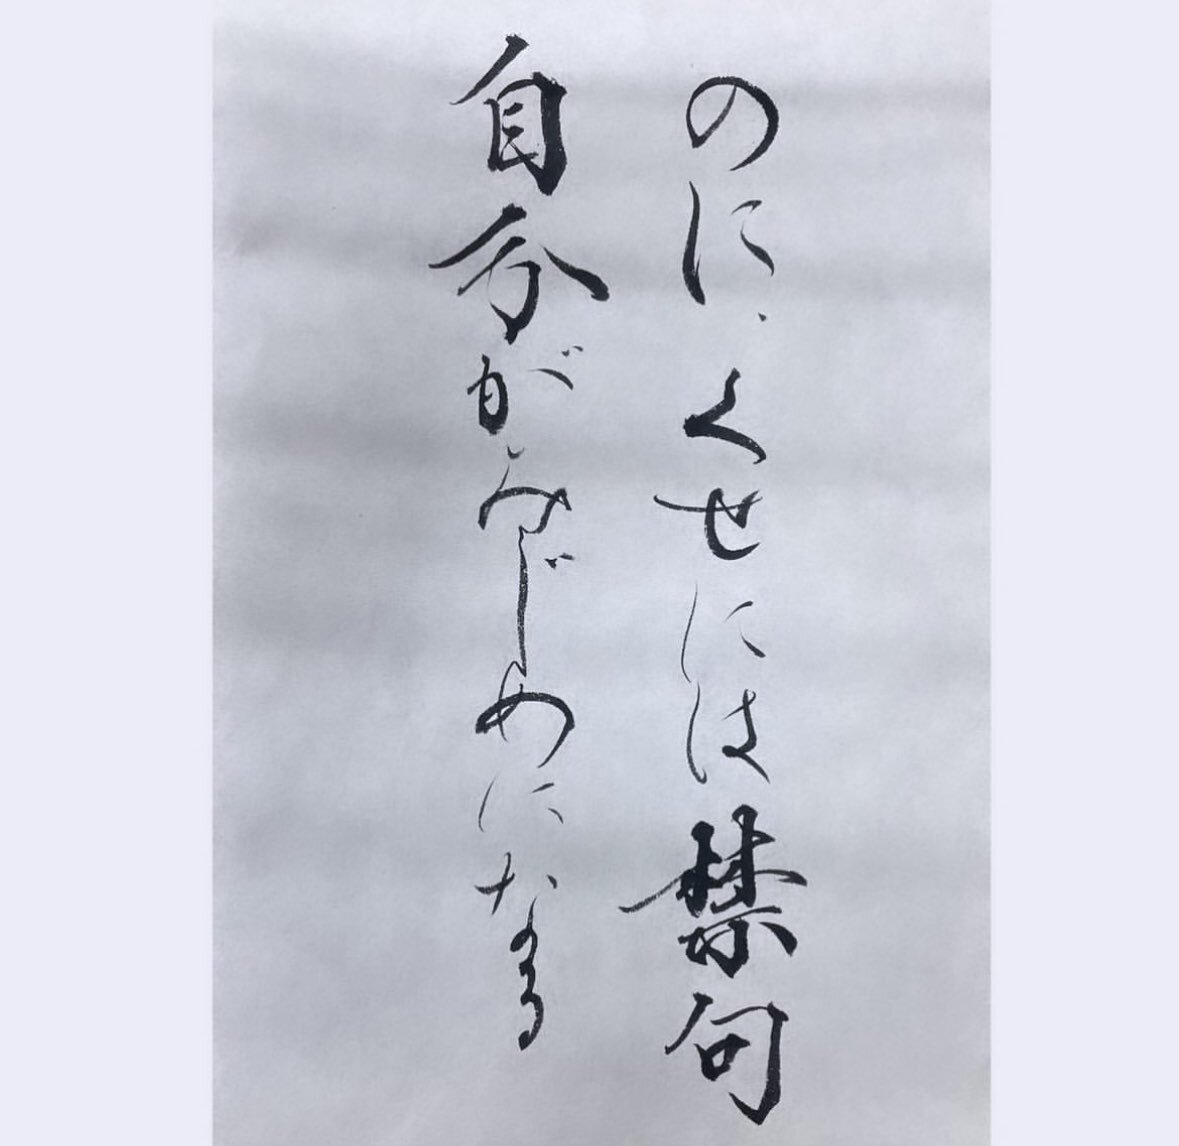 のに、くせには禁句
自分がみじめになる